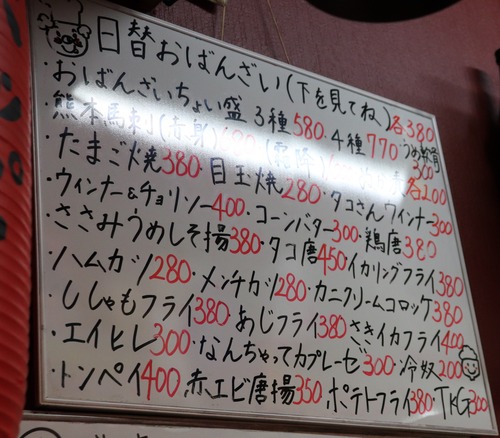 日替おばんざい(下を見てね)各380
・おばんざいちょい盛 3種580・4種770
熊本馬刺(赤身)(霜降) 各200
・たまご焼380・目玉焼280・タコさんウィンナー300
・ウィンナー&チョリソー400・コーンバター300・鶏唐380
・ささみうめしそ揚380・タコ唐450・イカリングフライ380
・ハムカツ280・メンチカツ280・カニクリームコロッケ380
・ししゃもフライ380・あじフライ380・さきイカフライ400
・エイヒレ300・なんちゃってカプレーゼ300・冷奴200
・トンペイ400・赤エビ唐揚350・ポテトフライ380・TKG300